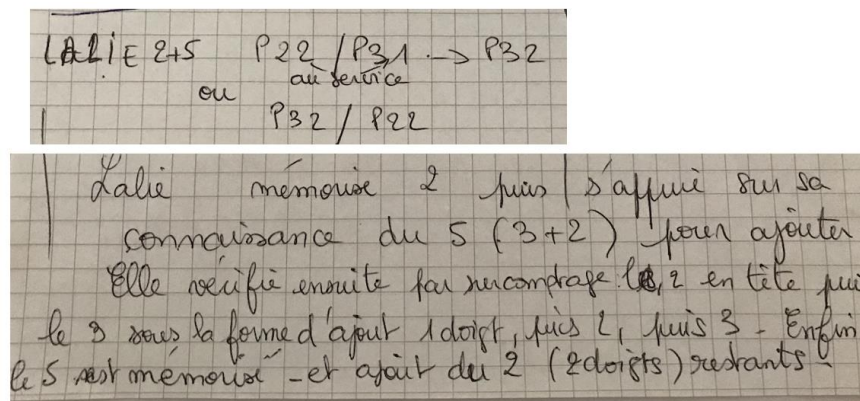 LALIE 2+5 P22 / P31 -> P32
au service
ou
P32 / P22
Lalie mémorise 2 puis s'appuie sur sa
connaissance du 5 (3+2) pour ajouter
Elle vérifie ensuite par recomptage : 2 en tête puis
le 3 sous la forme d'ajout 1 doigt, puis 2, puis 3 - Enfin
le 5 est mémorisé - et ajout du 2 (2 doigts) restants -